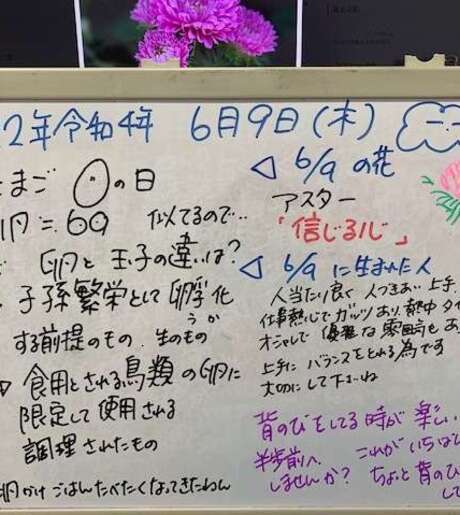 2年令和4年 6月9日(木)
たまご の日
卵 = 69 似てるので…
卵と玉子の違いは?
子孫繁栄として卵孵化
うか
する前提のもの 生のもの
食用とされる鳥類の卵に
限定して使用される
調理されたもの
卵かけごはんたべたくなってきたねん
◁ 6/9 の花
アスター
「信じる心」
◁ 6/9 に生まれた人
人当たり良く 人づきあい上手
仕事熱心でガッツあり、熱中タイ
オシャレで 優雅な雰囲気もあ
上手に バランスをとれる為です
大切にして下さいね
背のびをしてる時が楽しい
半歩前へ これがいちばん
しませんか? ちょっと背のび
して